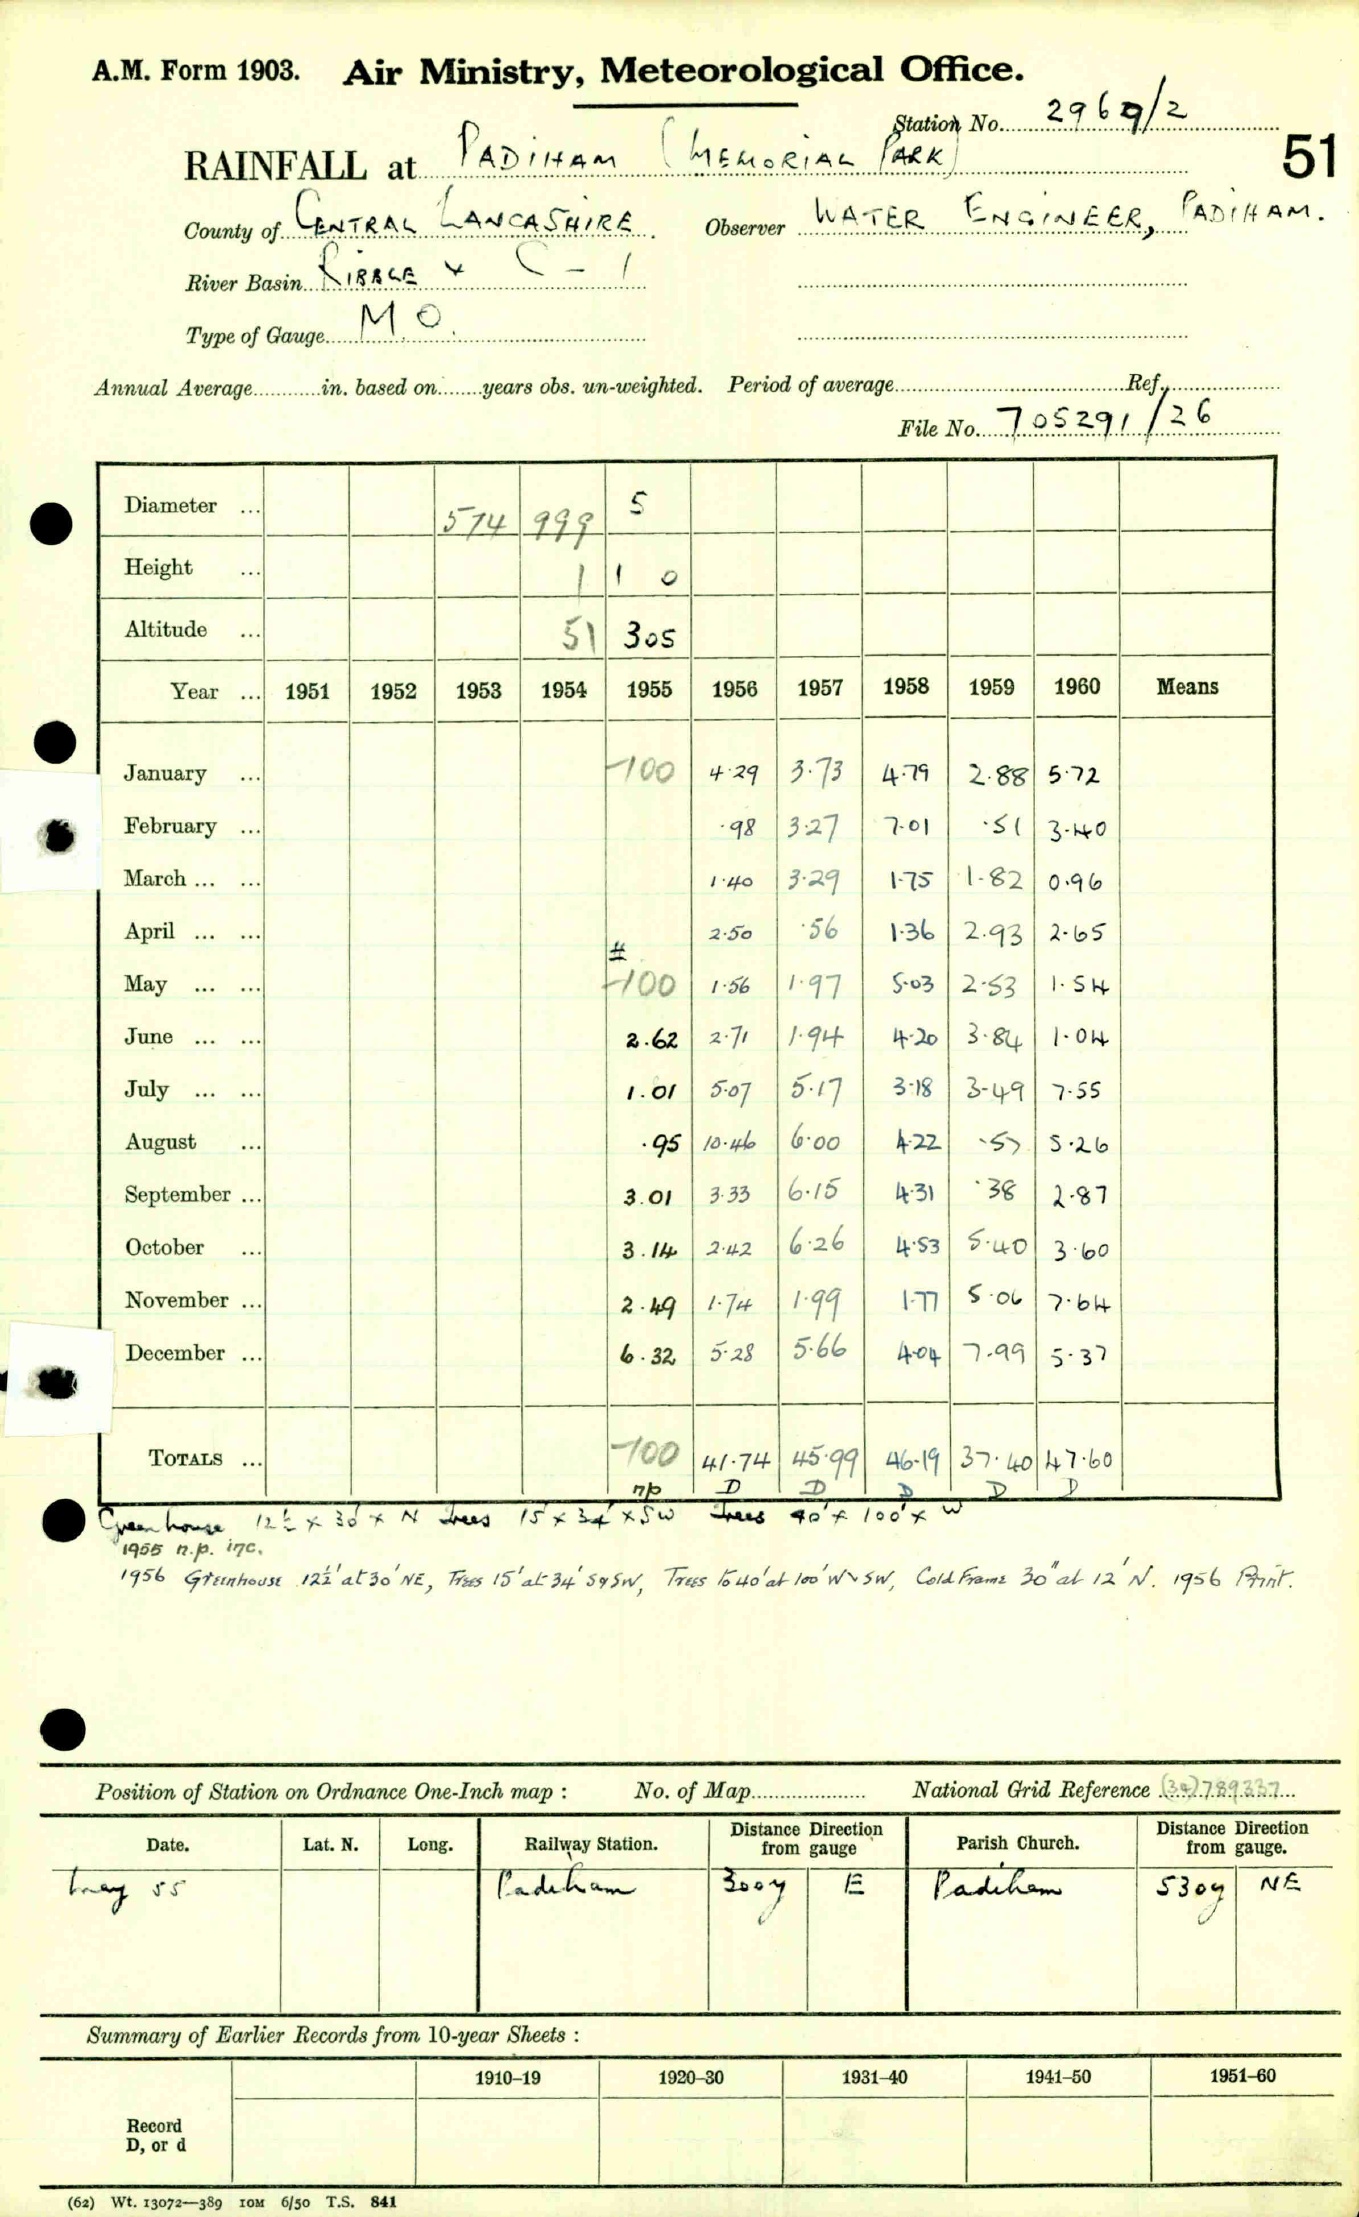 A.M. Form 1903. Air Ministry, Meteorological Office.
Station No. 2969/2
51
RAINFALL at PADIHAM (MEMORIAL PARK)
County of CENTRAL LANCASHIRE Observer WATER ENGINEER, PADIHAM.
River Basin RIBBLE C - 1
Type of Gauge M O.
Annual Average in. based on years obs. un-weighted. Period of average Ref.
File No. 705291/26
Diameter ... 574 999 5
Height ... 1 1 0
Altitude ... 51 305
Year ... 1951 1952 1953 1954 1955 1956 1957 1958 1959 1960 Means
January ... -100 4.29 3.73 4.79 2.88 5.72
February ... .98 3.27 7.01 .51 3.40
March ... ... 1.40 3.29 1.75 1.82 0.96
April ... ... 2.50 .56 1.36 2.93 2.65
May ... ... -100 1.56 1.97 5.03 2.53 1.54
June ... ... 2.62 2.71 1.94 4.20 3.84 1.04
July ... ... 1.01 5.07 5.17 3.18 3.49 7.55
August ... .95 10.46 6.00 4.22 .57 5.26
September ... 3.01 3.33 6.15 4.31 .38 2.87
October ... 3.14 2.42 6.26 4.53 5.40 3.60
November ... 2.49 1.74 1.99 1.77 5.06 7.64
December ... 6.32 5.28 5.66 4.04 7.99 5.37
TOTALS ... -100 41.74 45.99 46.19 37.40 47.60
np D D D D D
Greenhouse 12½ x 30' x N Trees 15' x 34' x SW Trees 40' x 100' x W
1955 n.p. inc.
1956 Greenhouse 12½' at 30' NE, Trees 15' at 34' S & SW, Trees to 40' at 100' W SW, Cold Frame 30" at 12' N. 1956 Print.
Position of Station on Ordnance One-Inch map : No. of Map National Grid Reference (34)789337
Date. Lat. N. Long. Railway Station. Distance Direction from gauge Parish Church. Distance Direction from gauge.
May 55 Padiham 300y E Padiham 530y NE
Summary of Earlier Records from 10-year Sheets :
1910–19 1920–30 1931–40 1941–50 1951–60
Record
D, or d
(62) Wt. 13072—389 10M 6/50 T.S. 841